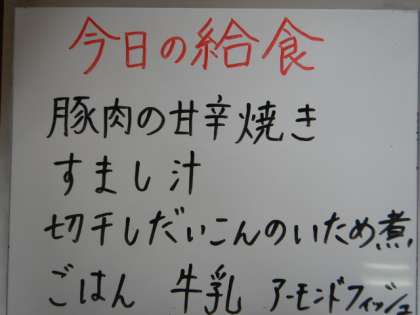 今日の給食
豚肉の甘辛焼き
すまし汁
切干しだいこんのいため煮
ごはん 牛乳 アーモンドフィッシュ